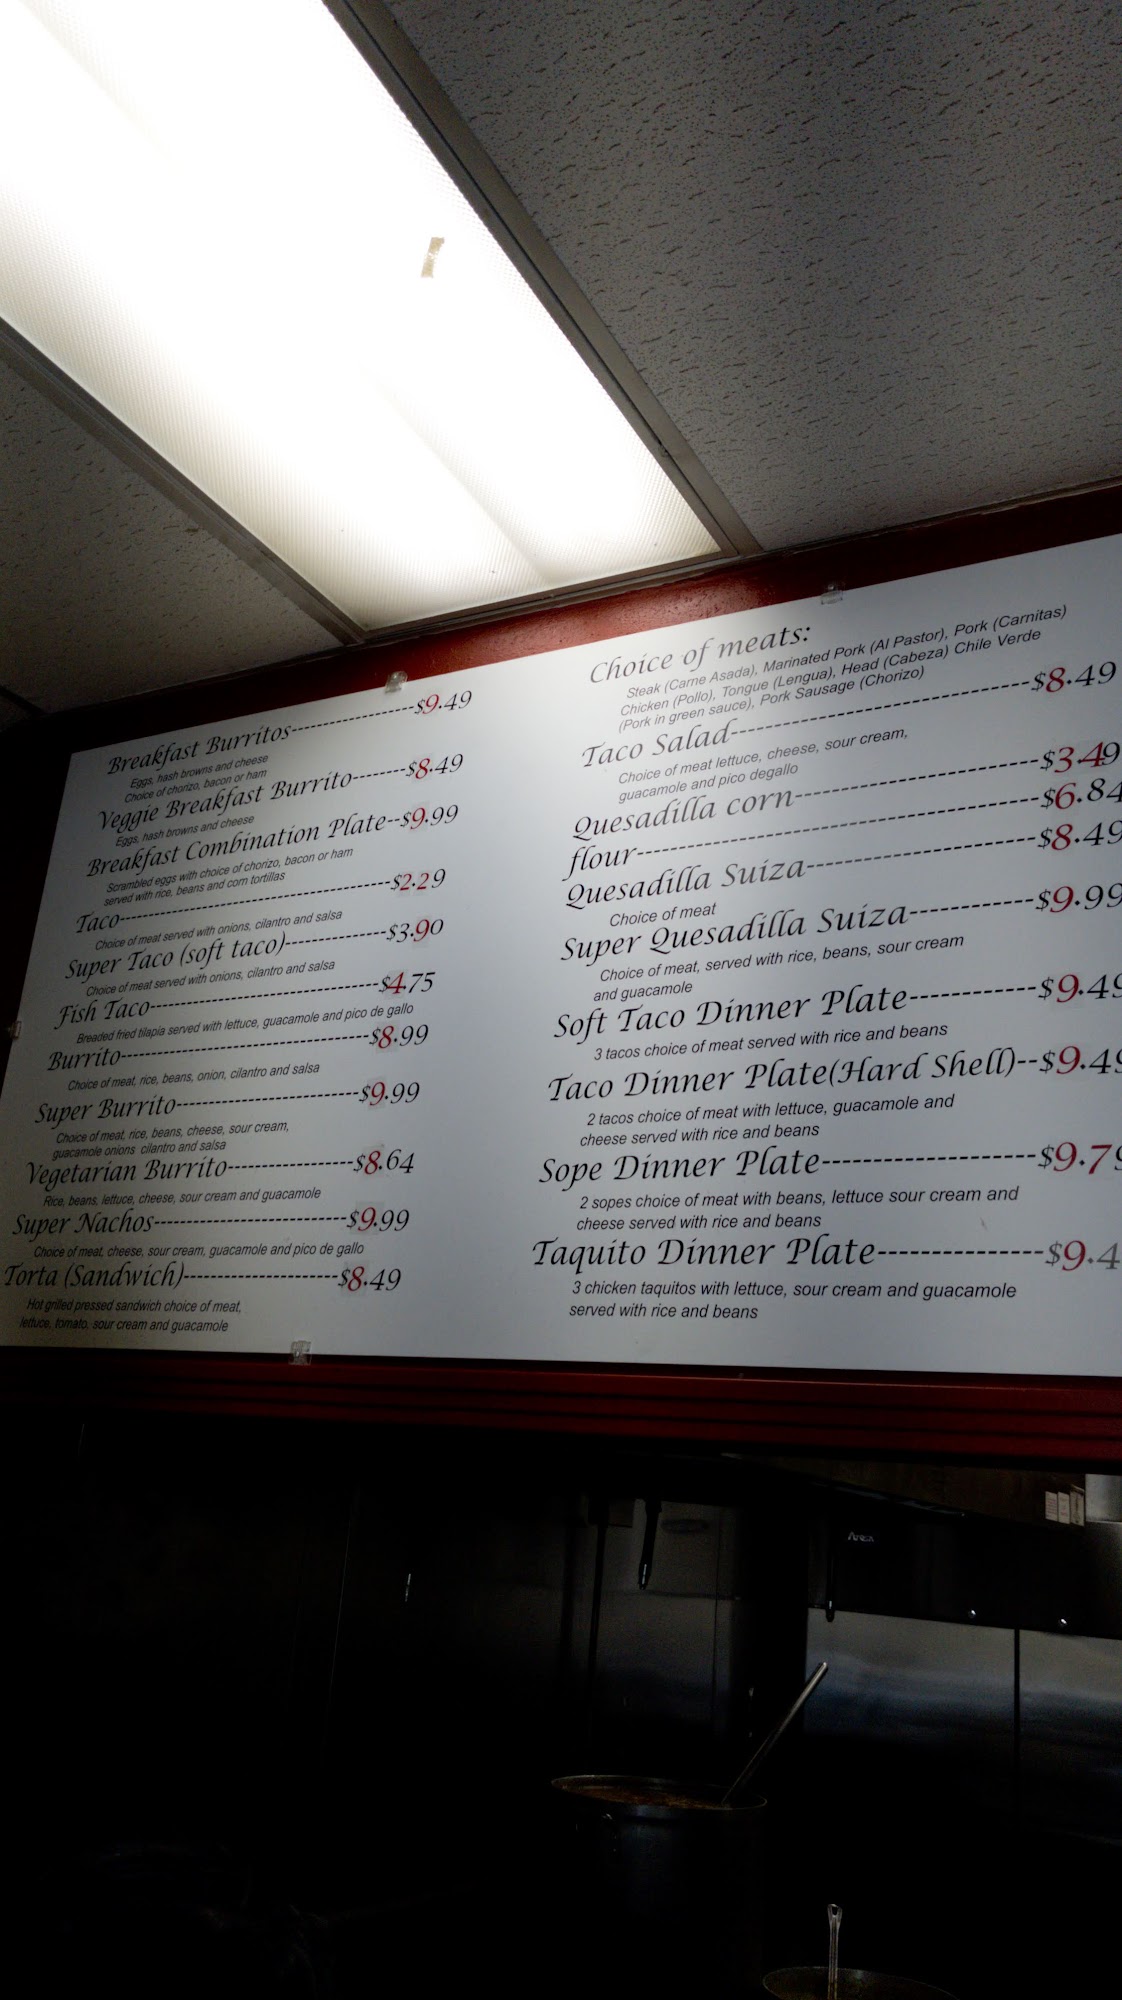 Breakfast Burritos----------------$9.49
Eggs, hash browns and cheese
Choice of chorizo, bacon or ham
Veggie Breakfast Burrito-------$8.49
Eggs, hash browns and cheese
Breakfast Combination Plate--$9.99
Scrambled eggs with choice of chorizo, bacon or ham
served with rice, beans and corn tortillas
Taco-----------------------------------$2.29
Choice of meat served with onions, cilantro and salsa
Super Taco (soft taco)-------------$3.90
Choice of meat served with onions, cilantro and salsa
Fish Taco------------------------------$4.75
Breaded fried tilapia served with lettuce, guacamole and pico de gallo
Burrito--------------------------------$8.99
Choice of meat, rice, beans, onion, cilantro and salsa
Super Burrito------------------------$9.99
Choice of meat, rice, beans, cheese, sour cream,
guacamole onions cilantro and salsa
Vegetarian Burrito----------------$8.64
Rice, beans, lettuce, cheese, sour cream and guacamole
Super Nachos-------------------------$9.99
Choice of meat, cheese, sour cream, guacamole and pico de gallo
Torta (Sandwich)--------------------$8.49
Hot grilled pressed sandwich choice of meat,
lettuce, tomato, sour cream and guacamole
Choice of meats:
Steak (Carne Asada), Marinated Pork (Al Pastor), Pork (Carnitas)
Chicken (Pollo), Tongue (Lengua), Head (Cabeza) Chile Verde
(Pork in green sauce), Pork Sausage (Chorizo)
Taco Salad-----------------------------$8.49
Choice of meat lettuce, cheese, sour cream,
guacamole and pico degallo
Quesadilla corn------------------------$3.49
flour---------------------------------------$6.84
Quesadilla Suiza----------------------$8.49
Choice of meat
Super Quesadilla Suiza------------$9.99
Choice of meat, served with rice, beans, sour cream
and guacamole
Soft Taco Dinner Plate------------$9.49
3 tacos choice of meat served with rice and beans
Taco Dinner Plate(Hard Shell)--$9.49
2 tacos choice of meat with lettuce, guacamole and
cheese served with rice and beans
Sope Dinner Plate-------------------$9.79
2 sopes choice of meat with beans, lettuce sour cream and
cheese served with rice and beans
Taquito Dinner Plate---------------$9.4
3 chicken taquitos with lettuce, sour cream and guacamole
served with rice and beans